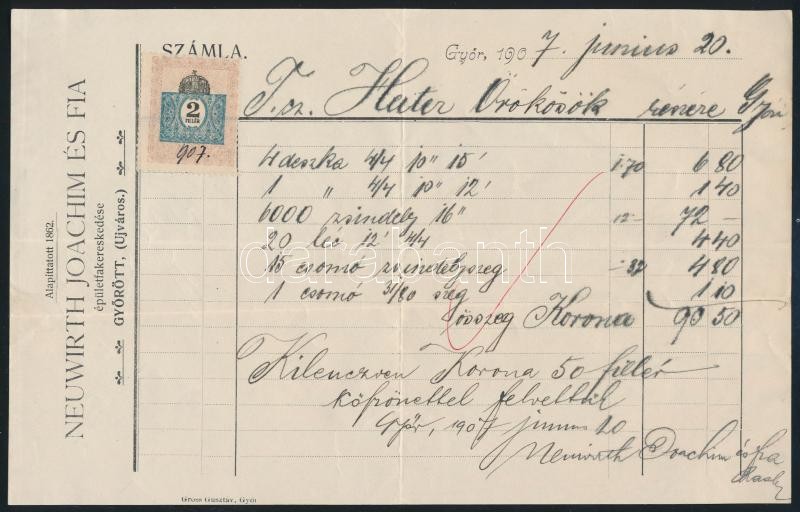 Alapíttatott 1862.
NEUWIRTH JOACHIM ÉS FIA
épületfakereskedése
GYŐRÖTT, (Ujváros.)
SZÁMLA.
2
FILLÉR
907.
Győr, 1907. junius 20.
T. cz. Örökösök részére Győr
4 deszka 4/4 10" 15' 1·70 6 80
1 " 4/4 10" 12' 1 40
6000 zsindely 16" 12- 72 -
20 léc 12' 4/4 4 40
15 csomó zsindelyszeg -32 4 80
1 csomó 31/80 szeg 1 10
összeg Korona 90 50
Kilenczven Korona 50 fillér
köszönettel felvettük
Győr, 1907 junius 20
Neuwirth Joachim és fia
darabanth
Gross Gusztáv, Győr